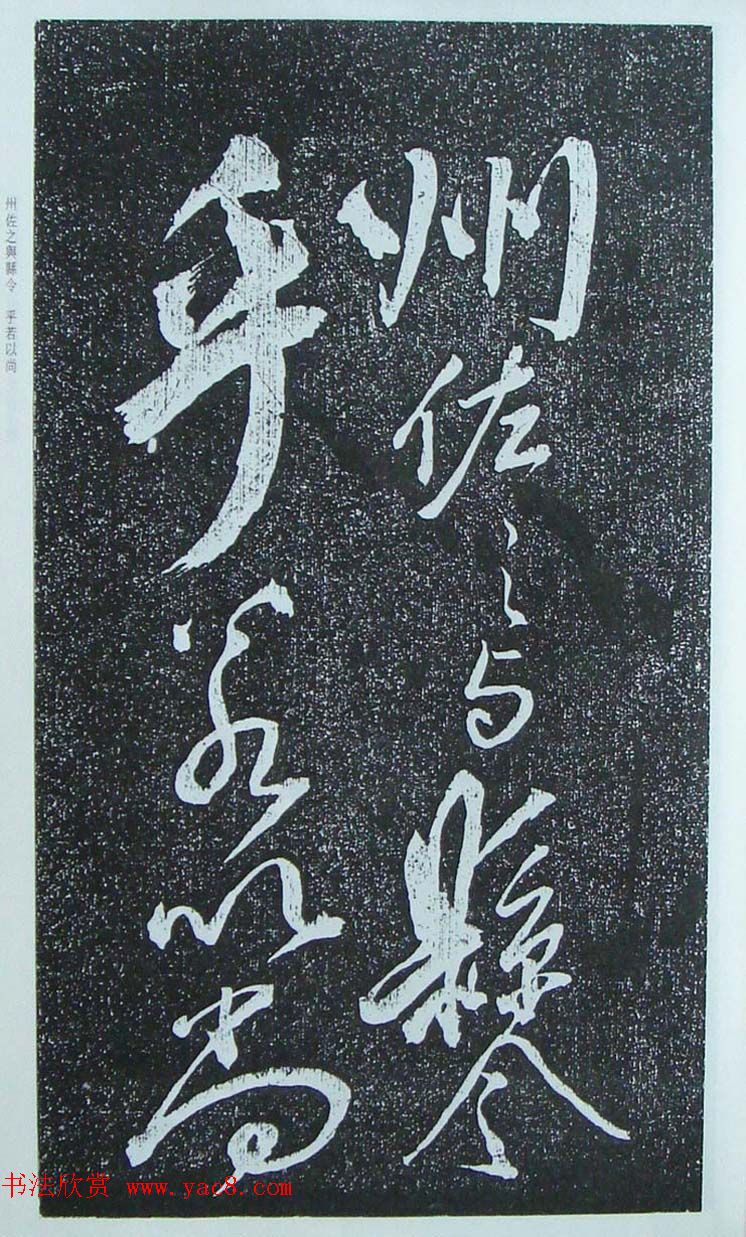 州佐之与縣令
乎若以尚
州佐之與縣令 乎若以尚
书法欣赏 www.yac8.com